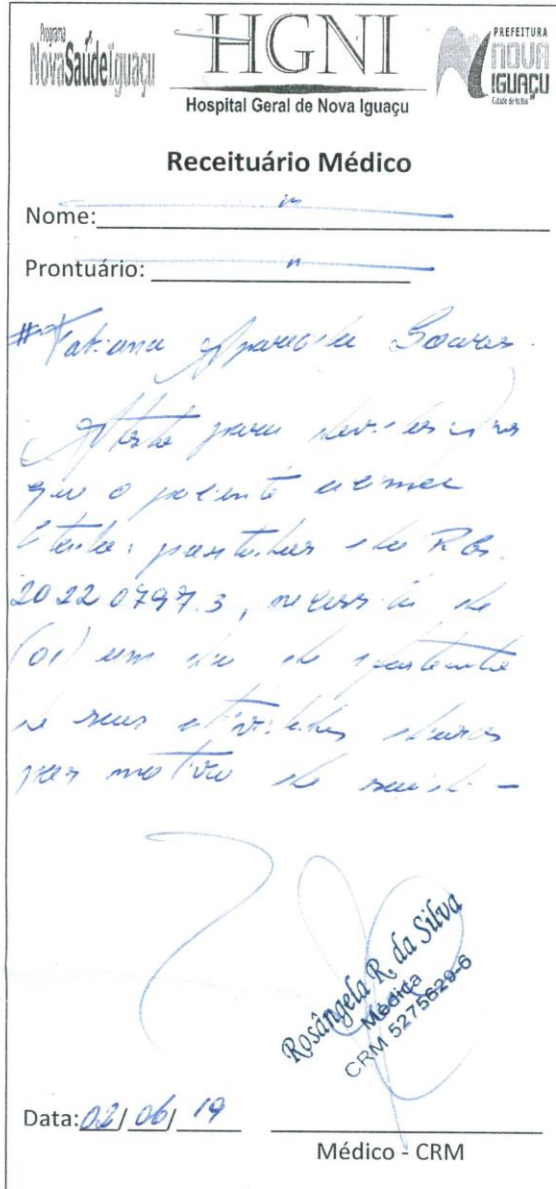 Programa
NovaSaúdeIguaçu
HGNI
Hospital Geral de Nova Iguaçu
PREFEITURA
NOVA
IGUAÇU
Cidade de todos
Receituário Médico
Nome:
Prontuário:
# Tatiana Aparecida Soares
Atesto para devidos fins
que o paciente acima
citada, portadora do RG
20220797.3, necessita de
(01) um dia de afastamento
de suas atividades
por motivo de saúde
Rosângela R. da Silva
Médica
CRM 5275629-6
Data: 02/06/19
Médico - CRM